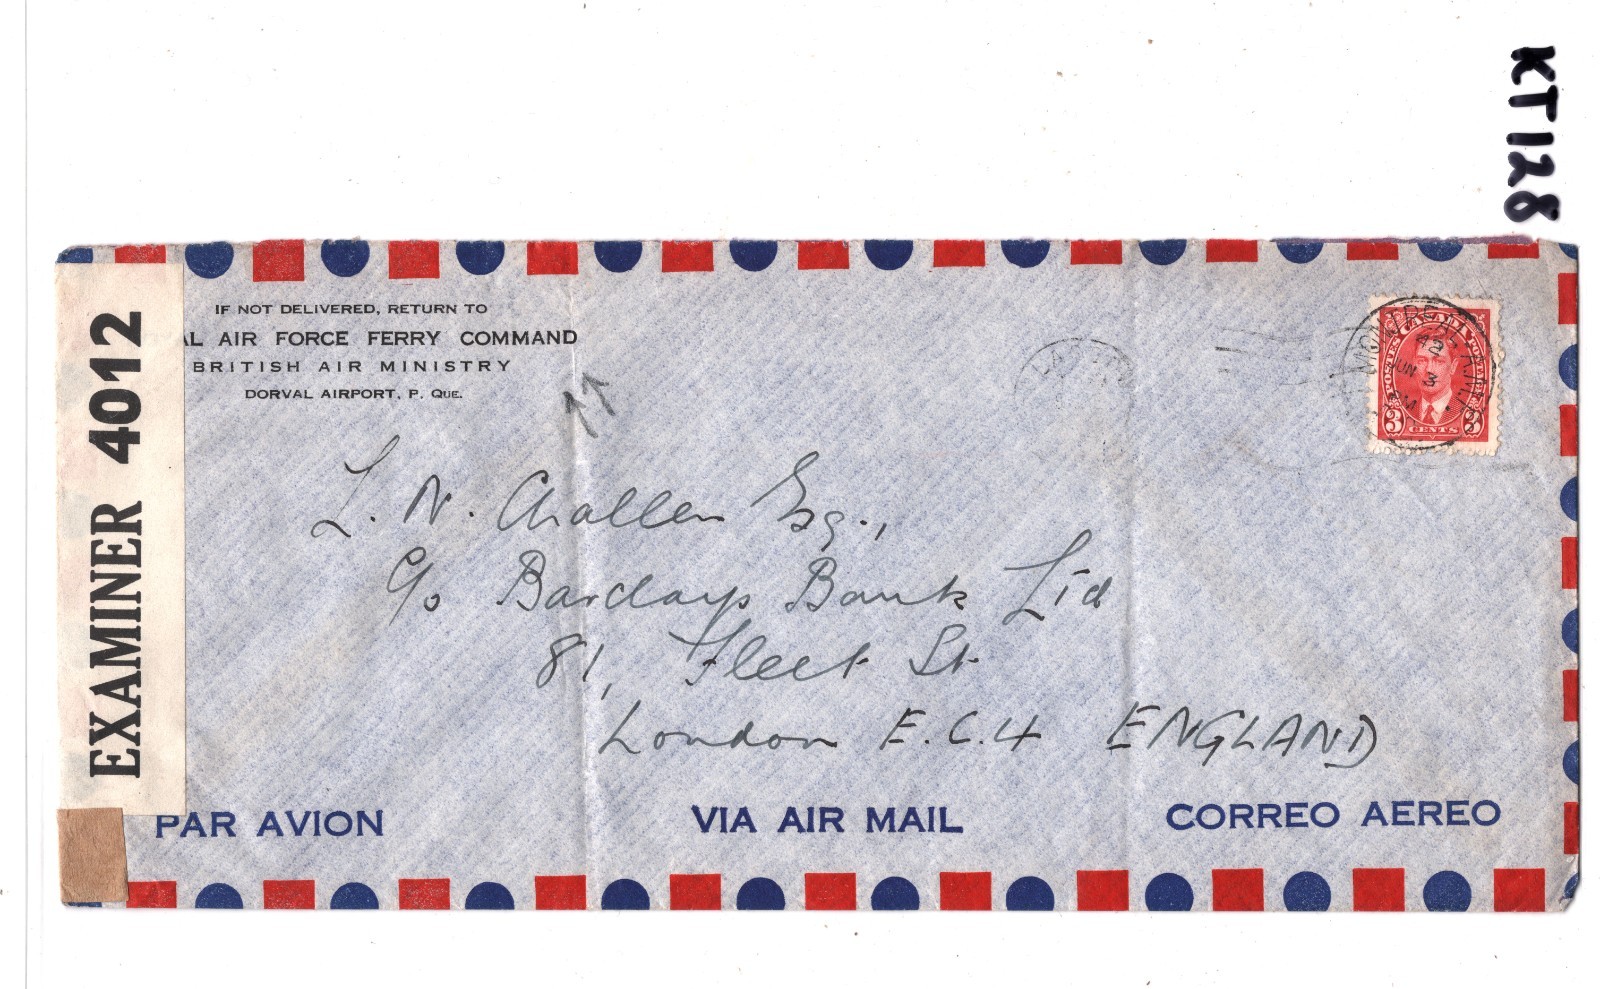 KT128
IF NOT DELIVERED, RETURN TO
AL AIR FORCE FERRY COMMAND
BRITISH AIR MINISTRY
DORVAL AIRPORT, P. QUE.
EXAMINER 4012
CANADA
POSTES POSTAGE
3 CENTS 3
MONTREAL
42
JUN 3
L. N. Challen Esq.,
c/o Barclays Bank Ltd
81, Fleet St.
London E.C.4 ENGLAND
PAR AVION VIA AIR MAIL CORREO AEREO